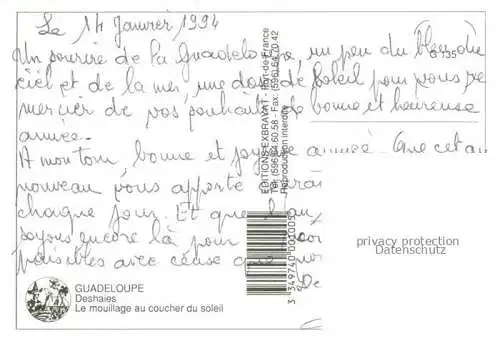 Le 14 Janvier 1994
Un sourire de la Guadeloupe, un peu du bleu du
ciel et de la mer, une dose de soleil pour vous re
mercier de vos souhaits de bonne et heureuse
année.
A mon tour, bonne et joyeuse année. Que cet an
nouveau vous apporte
chaque jour. Et que
soyons encore là pour
paisibles avec ceux que
De
G 135
EDITIONS EXBRAYAT - Fort-de-France
Tél. (596) 64.60.58 - Fax. (596) 64.70.42
Reproduction interdite
3 349740 000005
privacy protection
Datenschutz
GUADELOUPE
Deshaies
Le mouillage au coucher du soleil